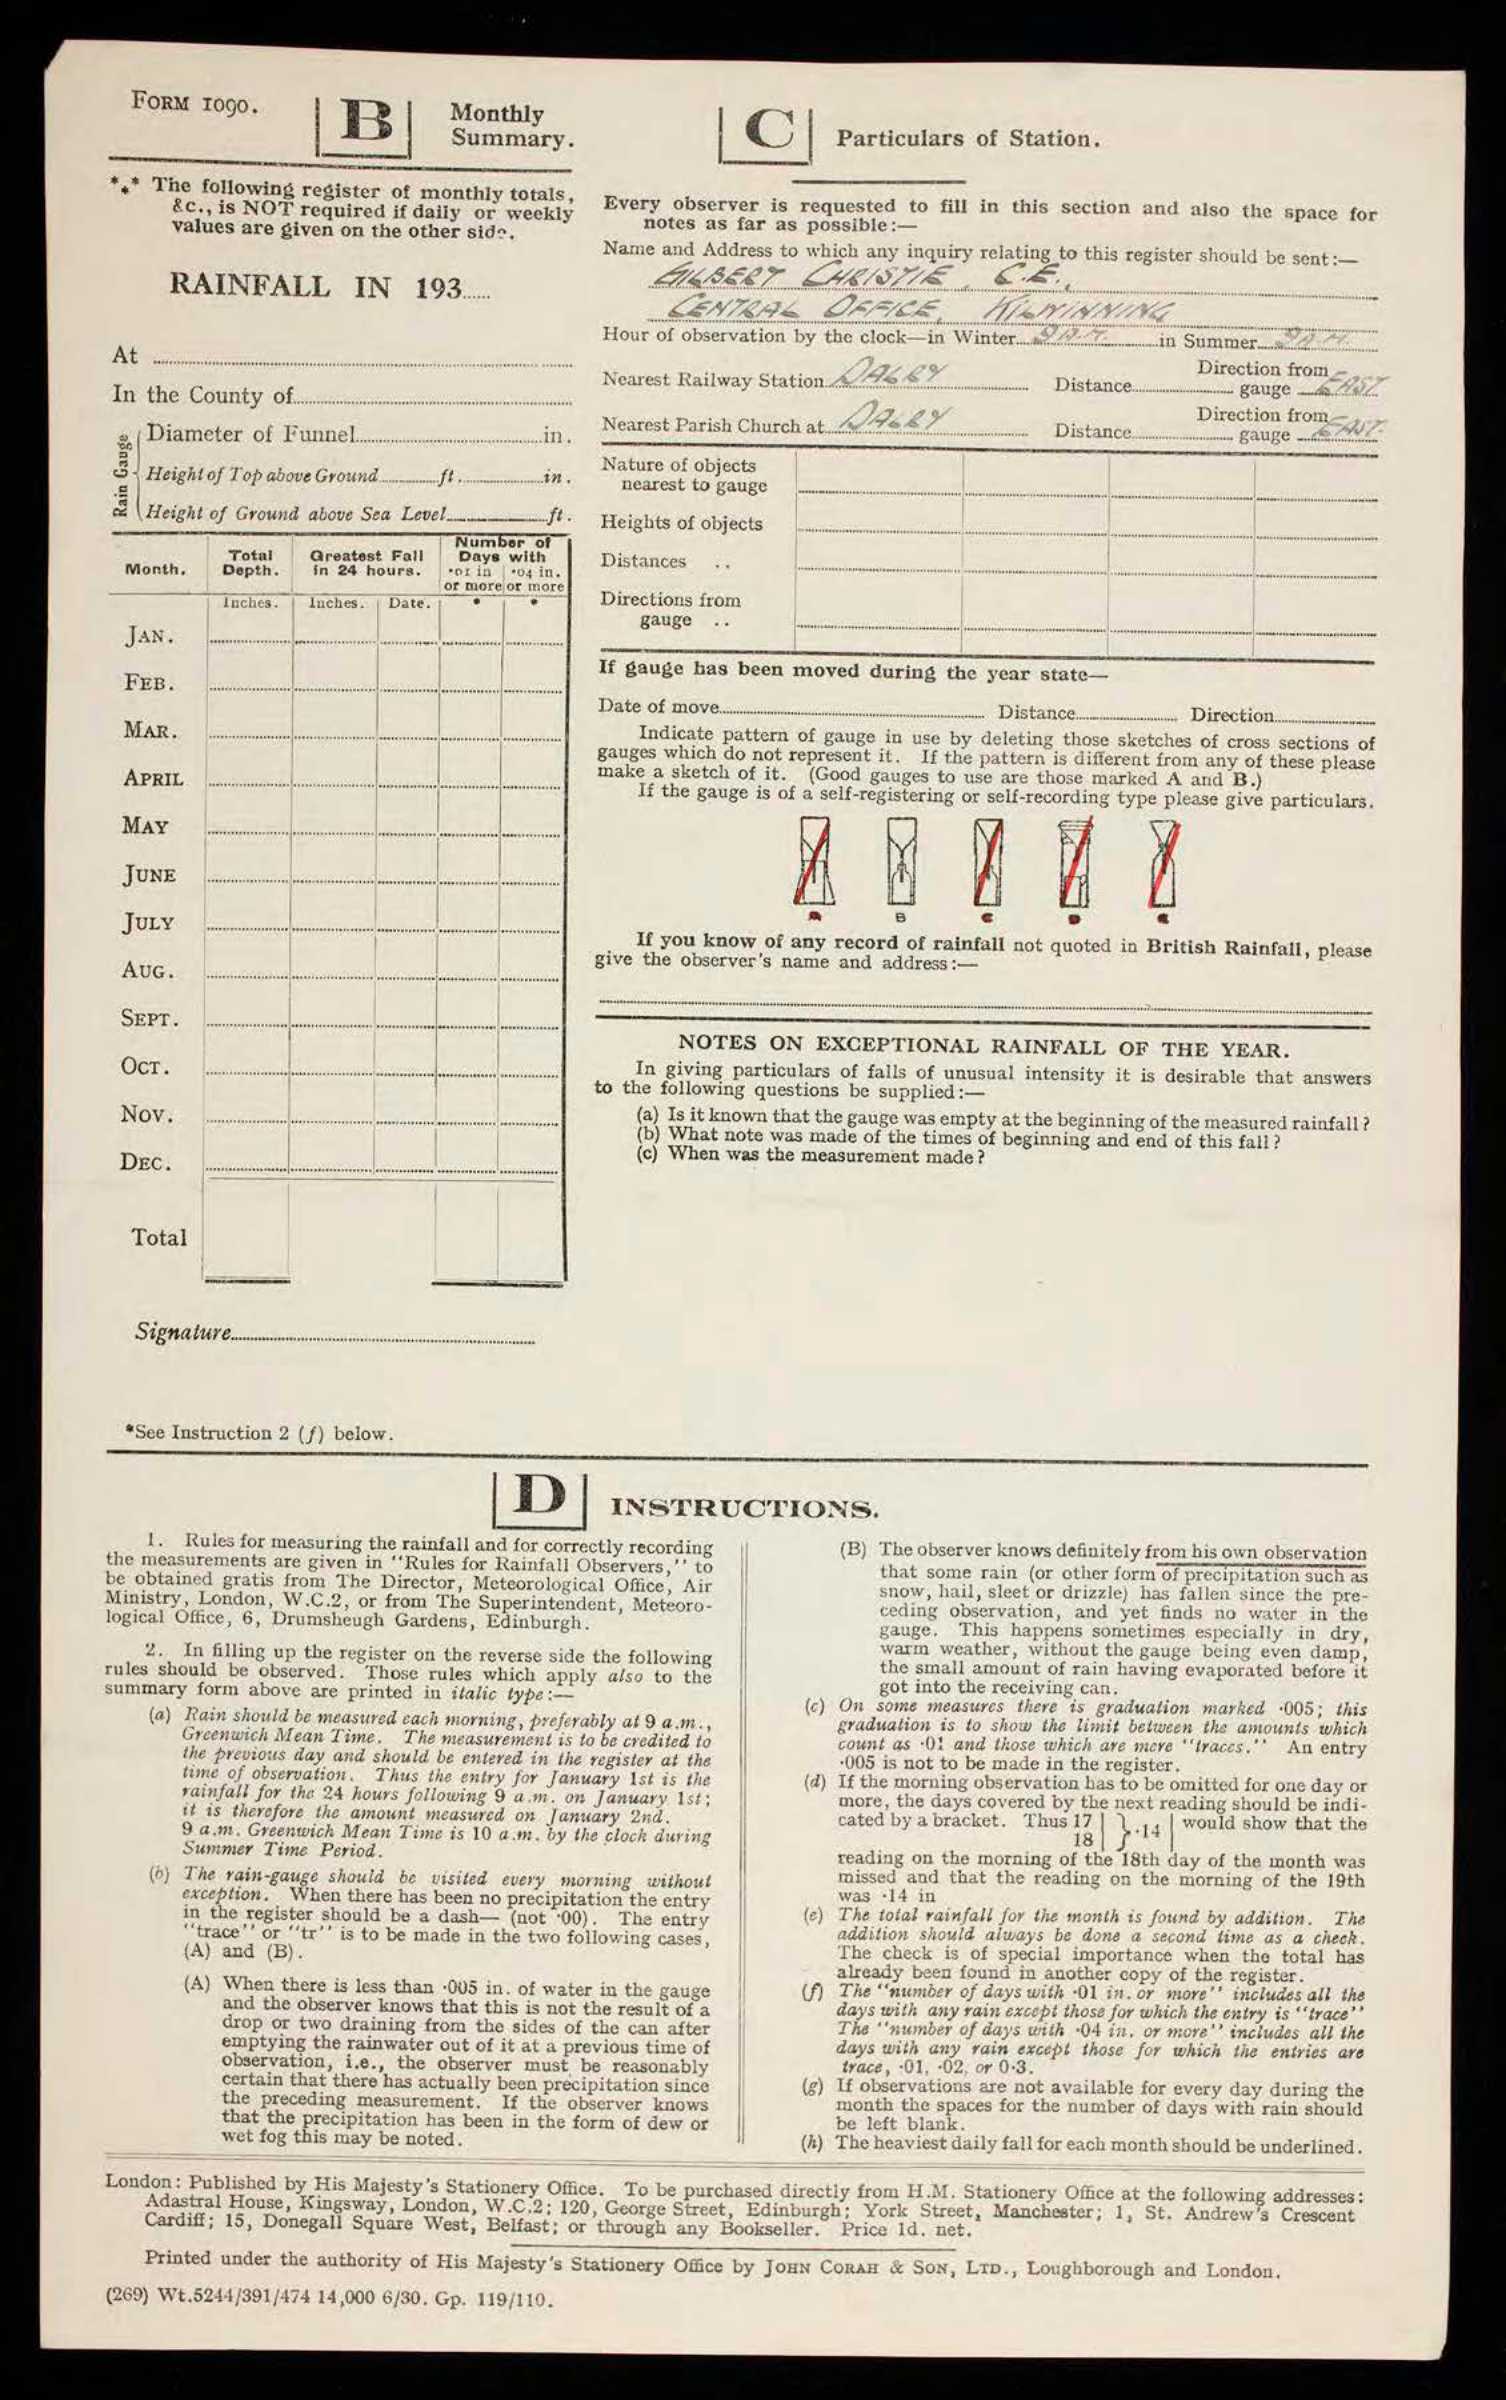 FORM 1090.
B
Monthly
Summary.
*** The following register of monthly totals,
&c., is NOT required if daily or weekly
values are given on the other side.
RAINFALL IN 193.....
At
In the County of
Rain Gauge
Diameter of Funnel in.
Height of Top above Ground ft. in.
Height of Ground above Sea Level ft.
Month. Total Depth. Greatest Fall in 24 hours. Number of Days with
·01 in or more ·04 in. or more
Inches. Inches. Date. * *
JAN.
FEB.
MAR.
APRIL
MAY
JUNE
JULY
AUG.
SEPT.
OCT.
NOV.
DEC.
Total
Signature
*See Instruction 2 (f) below.
C
Particulars of Station.
Every observer is requested to fill in this section and also the space for
notes as far as possible:—
Name and Address to which any inquiry relating to this register should be sent:—
GILBERT CHRISTIE, C.E.,
CENTRAL OFFICE, KILWINNING
Hour of observation by the clock—in Winter 9 A.M. in Summer 9 A.M.
Nearest Railway Station DALRY Distance Direction from gauge EAST.
Nearest Parish Church at DALRY Distance Direction from gauge EAST.
Nature of objects
nearest to gauge
Heights of objects
Distances ..
Directions from
gauge ..
If gauge has been moved during the year state—
Date of move Distance Direction
Indicate pattern of gauge in use by deleting those sketches of cross sections of
gauges which do not represent it. If the pattern is different from any of these please
make a sketch of it. (Good gauges to use are those marked A and B.)
If the gauge is of a self-registering or self-recording type please give particulars.
B
If you know of any record of rainfall not quoted in British Rainfall, please
give the observer's name and address:—
NOTES ON EXCEPTIONAL RAINFALL OF THE YEAR.
In giving particulars of falls of unusual intensity it is desirable that answers
to the following questions be supplied:—
(a) Is it known that the gauge was empty at the beginning of the measured rainfall?
(b) What note was made of the times of beginning and end of this fall?
(c) When was the measurement made?
D
INSTRUCTIONS.
1. Rules for measuring the rainfall and for correctly recording
the measurements are given in "Rules for Rainfall Observers," to
be obtained gratis from The Director, Meteorological Office, Air
Ministry, London, W.C.2, or from The Superintendent, Meteoro-
logical Office, 6, Drumsheugh Gardens, Edinburgh.
2. In filling up the register on the reverse side the following
rules should be observed. Those rules which apply also to the
summary form above are printed in italic type:—
(a) Rain should be measured each morning, preferably at 9 a.m.,
Greenwich Mean Time. The measurement is to be credited to
the previous day and should be entered in the register at the
time of observation. Thus the entry for January 1st is the
rainfall for the 24 hours following 9 a.m. on January 1st;
it is therefore the amount measured on January 2nd.
9 a.m. Greenwich Mean Time is 10 a.m. by the clock during
Summer Time Period.
(b) The rain-gauge should be visited every morning without
exception. When there has been no precipitation the entry
in the register should be a dash— (not ·00). The entry
"trace" or "tr" is to be made in the two following cases,
(A) and (B).
(A) When there is less than ·005 in. of water in the gauge
and the observer knows that this is not the result of a
drop or two draining from the sides of the can after
emptying the rainwater out of it at a previous time of
observation, i.e., the observer must be reasonably
certain that there has actually been precipitation since
the preceding measurement. If the observer knows
that the precipitation has been in the form of dew or
wet fog this may be noted.
(B) The observer knows definitely from his own observation
that some rain (or other form of precipitation such as
snow, hail, sleet or drizzle) has fallen since the pre-
ceding observation, and yet finds no water in the
gauge. This happens sometimes especially in dry,
warm weather, without the gauge being even damp,
the small amount of rain having evaporated before it
got into the receiving can.
(c) On some measures there is graduation marked ·005; this
graduation is to show the limit between the amounts which
count as ·01 and those which are mere "traces." An entry
·005 is not to be made in the register.
(d) If the morning observation has to be omitted for one day or
more, the days covered by the next reading should be indi-
cated by a bracket. Thus 17 | } ·14 | would show that the
18
reading on the morning of the 18th day of the month was
missed and that the reading on the morning of the 19th
was ·14 in
(e) The total rainfall for the month is found by addition. The
addition should always be done a second time as a check.
The check is of special importance when the total has
already been found in another copy of the register.
(f) The "number of days with ·01 in. or more" includes all the
days with any rain except those for which the entry is "trace"
The "number of days with ·04 in. or more" includes all the
days with any rain except those for which the entries are
trace, ·01, ·02, or 0·3.
(g) If observations are not available for every day during the
month the spaces for the number of days with rain should
be left blank.
(h) The heaviest daily fall for each month should be underlined.
London: Published by His Majesty's Stationery Office. To be purchased directly from H.M. Stationery Office at the following addresses:
Adastral House, Kingsway, London, W.C.2; 120, George Street, Edinburgh; York Street, Manchester; 1, St. Andrew's Crescent
Cardiff; 15, Donegall Square West, Belfast; or through any Bookseller. Price 1d. net.
Printed under the authority of His Majesty's Stationery Office by JOHN CORAH & SON, LTD., Loughborough and London.
(269) Wt.5244/391/474 14,000 6/30. Gp. 119/110.